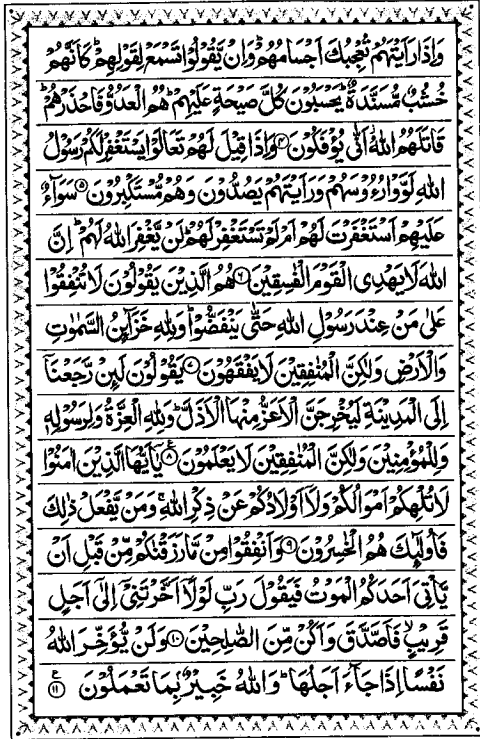 وَاِذَا رَاَيْتَهُمْ تُعْجِبُكَ اَجْسَامُهُمْ ؕ وَاِنْ يَّقُوْلُوْا تَسْمَعْ لِقَوْلِهِمْ ؕ كَاَنَّهُمْ
خُشُبٌ مُّسَنَّدَةٌ ؕ يَحْسَبُوْنَ كُلَّ صَيْحَةٍ عَلَيْهِمْ ؕ هُمُ الْعَدُوُّ فَاحْذَرْهُمْ ؕ
قَاتَلَهُمُ اللّٰهُ اَنّٰى يُؤْفَكُوْنَ ۴ وَاِذَا قِيْلَ لَهُمْ تَعَالَوْا يَسْتَغْفِرْ لَكُمْ رَسُوْلُ
اللّٰهِ لَوَّوْا رُءُوْسَهُمْ وَرَاَيْتَهُمْ يَصُدُّوْنَ وَهُمْ مُّسْتَكْبِرُوْنَ ۵ سَوَآءٌ
عَلَيْهِمْ اَسْتَغْفَرْتَ لَهُمْ اَمْ لَمْ تَسْتَغْفِرْ لَهُمْ ؕ لَنْ يَّغْفِرَ اللّٰهُ لَهُمْ ؕ اِنَّ
اللّٰهَ لَا يَهْدِى الْقَوْمَ الْفٰسِقِيْنَ ۶ هُمُ الَّذِيْنَ يَقُوْلُوْنَ لَا تُنْفِقُوْا
عَلٰى مَنْ عِنْدَ رَسُوْلِ اللّٰهِ حَتّٰى يَنْفَضُّوْا ؕ وَلِلّٰهِ خَزَآئِنُ السَّمٰوٰتِ
وَالْاَرْضِ وَلٰكِنَّ الْمُنٰفِقِيْنَ لَا يَفْقَهُوْنَ ۷ يَقُوْلُوْنَ لَئِنْ رَّجَعْنَاۤ
اِلَى الْمَدِيْنَةِ لَيُخْرِجَنَّ الْاَعَزُّ مِنْهَا الْاَذَلَّ ؕ وَلِلّٰهِ الْعِزَّةُ وَلِرَسُوْلِهٖ
وَلِلْمُؤْمِنِيْنَ وَلٰكِنَّ الْمُنٰفِقِيْنَ لَا يَعْلَمُوْنَ ۸ يٰۤاَيُّهَا الَّذِيْنَ اٰمَنُوْا
لَا تُلْهِكُمْ اَمْوَالُكُمْ وَلَاۤ اَوْلَادُكُمْ عَنْ ذِكْرِ اللّٰهِ ۚ وَمَنْ يَّفْعَلْ ذٰلِكَ
فَاُولٰٓئِكَ هُمُ الْخٰسِرُوْنَ ۹ وَاَنْفِقُوْا مِنْ مَّا رَزَقْنٰكُمْ مِّنْ قَبْلِ اَنْ
يَّاْتِىَ اَحَدَكُمُ الْمَوْتُ فَيَقُوْلَ رَبِّ لَوْلَاۤ اَخَّرْتَنِىْۤ اِلٰٓى اَجَلٍ
قَرِيْبٍ ۙ فَاَصَّدَّقَ وَاَكُنْ مِّنَ الصّٰلِحِيْنَ ۱۰ وَلَنْ يُّؤَخِّرَ اللّٰهُ
نَفْسًا اِذَا جَآءَ اَجَلُهَا ؕ وَاللّٰهُ خَبِيْرٌۢ بِمَا تَعْمَلُوْنَ ۱۱ ع